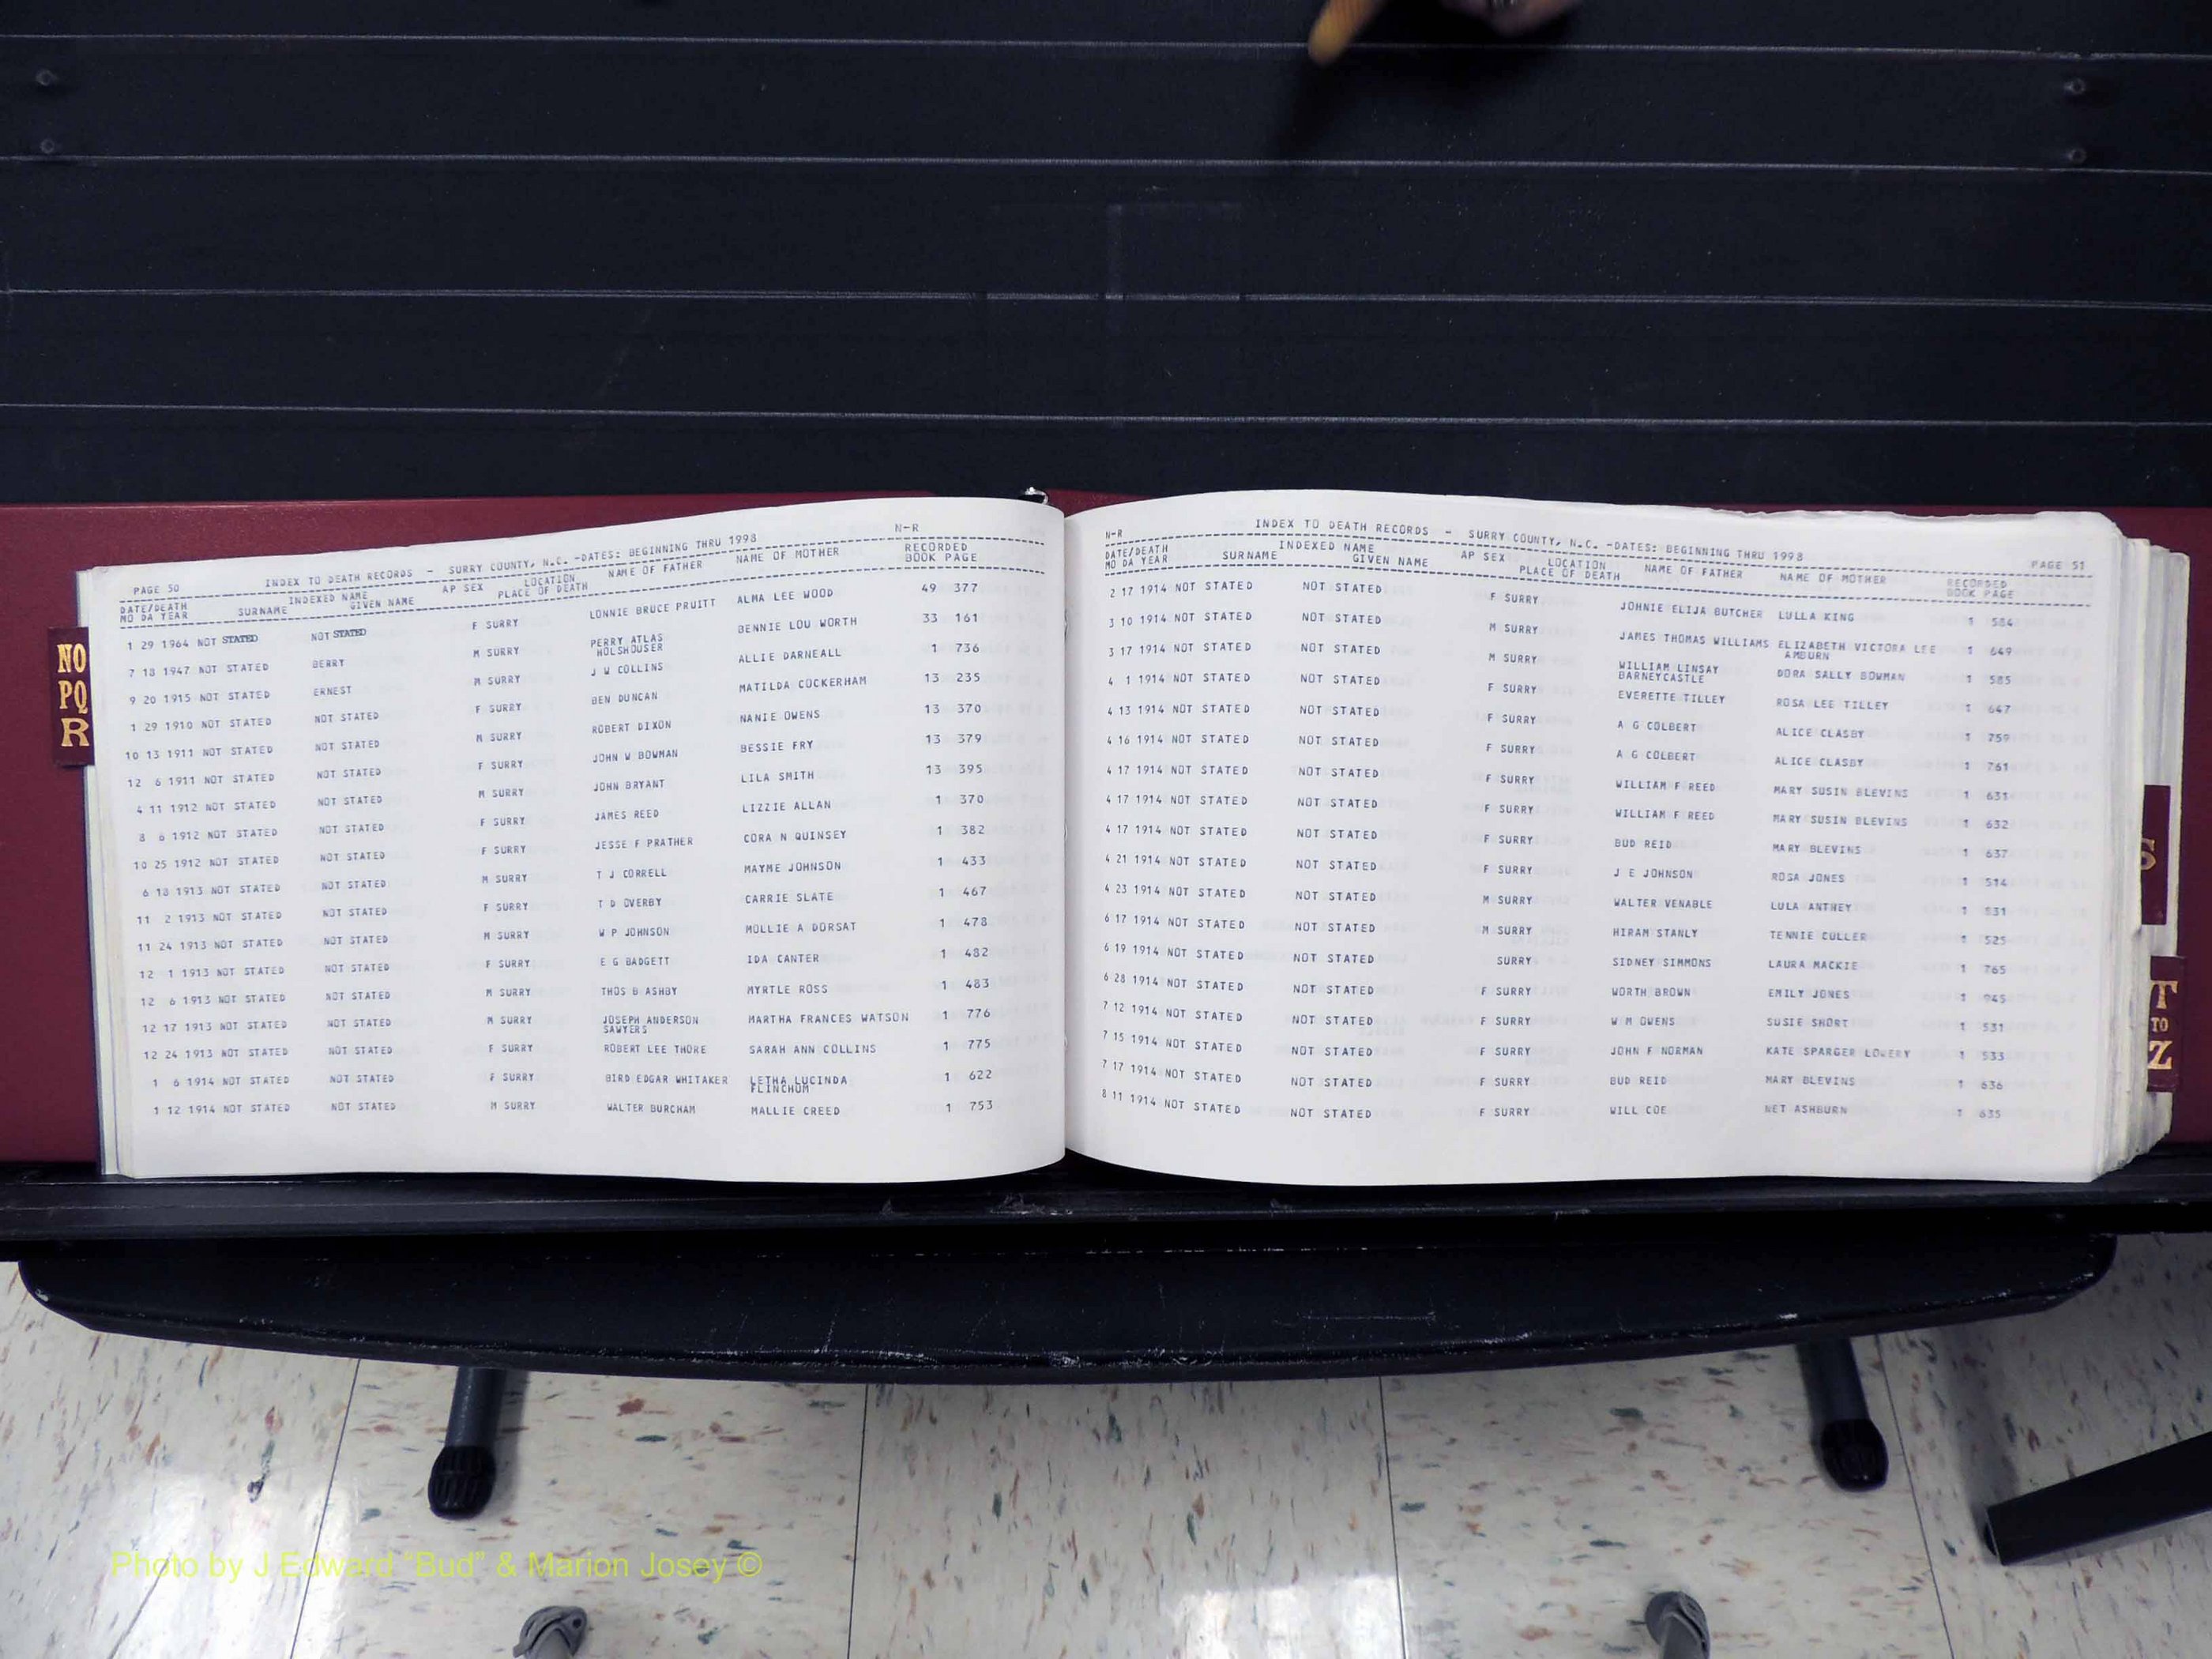 NO
PQ
R
PAGE 50 INDEX TO DEATH RECORDS - SURRY COUNTY, N.C. -DATES: BEGINNING THRU 1998 N-R
DATE/DEATH INDEXED NAME AP SEX LOCATION NAME OF FATHER NAME OF MOTHER RECORDED
MO DA YEAR SURNAME GIVEN NAME PLACE OF DEATH BOOK PAGE
1 29 1964 NOT STATED NOT STATED F SURRY LONNIE BRUCE PRUITT ALMA LEE WOOD 49 377
7 18 1947 NOT STATED BERRY M SURRY PERRY ATLAS HOLSHOUSER BENNIE LOU WORTH 33 161
9 20 1915 NOT STATED ERNEST M SURRY J W COLLINS ALLIE DARNEALL 1 736
1 29 1910 NOT STATED NOT STATED F SURRY BEN DUNCAN MATILDA COCKERHAM 13 235
10 13 1911 NOT STATED NOT STATED M SURRY ROBERT DIXON NANIE OWENS 13 370
12 6 1911 NOT STATED NOT STATED F SURRY JOHN W BOWMAN BESSIE FRY 13 379
4 11 1912 NOT STATED NOT STATED M SURRY JOHN BRYANT LILA SMITH 13 395
8 6 1912 NOT STATED NOT STATED F SURRY JAMES REED LIZZIE ALLAN 1 370
10 25 1912 NOT STATED NOT STATED F SURRY JESSE F PRATHER CORA N QUINSEY 1 382
6 18 1913 NOT STATED NOT STATED M SURRY T J CORRELL MAYME JOHNSON 1 433
11 2 1913 NOT STATED NOT STATED F SURRY T D OVERBY CARRIE SLATE 1 467
11 24 1913 NOT STATED NOT STATED M SURRY W P JOHNSON MOLLIE A DORSAT 1 478
12 1 1913 NOT STATED NOT STATED F SURRY E G BADGETT IDA CANTER 1 482
12 6 1913 NOT STATED NOT STATED M SURRY THOS B ASHBY MYRTLE ROSS 1 483
12 17 1913 NOT STATED NOT STATED M SURRY JOSEPH ANDERSON SAWYERS MARTHA FRANCES WATSON 1 776
12 24 1913 NOT STATED NOT STATED F SURRY ROBERT LEE THORE SARAH ANN COLLINS 1 775
1 6 1914 NOT STATED NOT STATED F SURRY BIRD EDGAR WHITAKER LETHA LUCINDA FLINCHUM 1 622
1 12 1914 NOT STATED NOT STATED M SURRY WALTER BURCHAM MALLIE CREED 1 753
N-R INDEX TO DEATH RECORDS - SURRY COUNTY, N.C. -DATES: BEGINNING THRU 1998 PAGE 51
DATE/DEATH INDEXED NAME AP SEX LOCATION NAME OF FATHER NAME OF MOTHER RECORDED
MO DA YEAR SURNAME GIVEN NAME PLACE OF DEATH BOOK PAGE
2 17 1914 NOT STATED NOT STATED F SURRY JOHNIE ELIJA BUTCHER LULLA KING 1 584
3 10 1914 NOT STATED NOT STATED M SURRY JAMES THOMAS WILLIAMS ELIZABETH VICTORA LEE AMBURN 1 649
3 17 1914 NOT STATED NOT STATED M SURRY WILLIAM LINSAY BARNEYCASTLE DORA SALLY BOWMAN 1 585
4 1 1914 NOT STATED NOT STATED F SURRY EVERETTE TILLEY ROSA LEE TILLEY 1 647
4 13 1914 NOT STATED NOT STATED F SURRY A G COLBERT ALICE CLASBY 1 759
4 16 1914 NOT STATED NOT STATED F SURRY A G COLBERT ALICE CLASBY 1 761
4 17 1914 NOT STATED NOT STATED F SURRY WILLIAM F REED MARY SUSIN BLEVINS 1 631
4 17 1914 NOT STATED NOT STATED F SURRY WILLIAM F REED MARY SUSIN BLEVINS 1 632
4 17 1914 NOT STATED NOT STATED F SURRY BUD REID MARY BLEVINS 1 637
4 21 1914 NOT STATED NOT STATED F SURRY J E JOHNSON ROSA JONES 1 514
4 23 1914 NOT STATED NOT STATED M SURRY WALTER VENABLE LULA ANTHEY 1 831
6 17 1914 NOT STATED NOT STATED M SURRY HIRAM STANLY TENNIE CULLER 1 525
6 19 1914 NOT STATED NOT STATED SURRY SIDNEY SIMMONS LAURA MACKIE 1 765
6 28 1914 NOT STATED NOT STATED F SURRY WORTH BROWN EMILY JONES 1 945
7 12 1914 NOT STATED NOT STATED F SURRY W M OWENS SUSIE SHORT 1 531
7 15 1914 NOT STATED NOT STATED F SURRY JOHN F NORMAN KATE SPARGER LOWERY 1 533
7 17 1914 NOT STATED NOT STATED F SURRY BUD REID MARY BLEVINS 1 636
8 11 1914 NOT STATED NOT STATED F SURRY WILL COE NET ASHBURN 1 635
S
T
TO
Z
Photo by J Edward "Bud" & Marion Josey ©